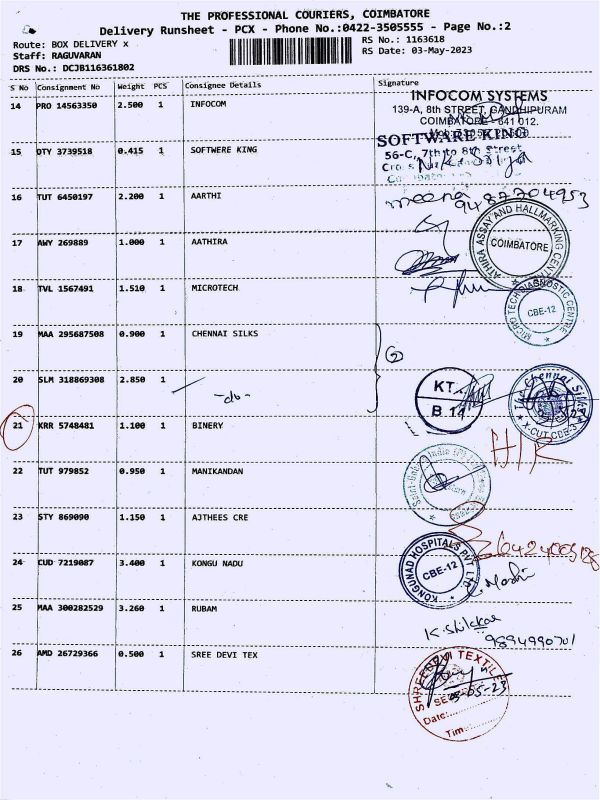 THE PROFESSIONAL COURIERS, COIMBATORE
Delivery Runsheet - PCX - Phone No.:0422-3505555 - Page No.:2
Route: BOX DELIVERY x
RS No.: 1163618
Staff: RAGUVARAN
RS Date: 03-May-2023
DRS No.: DCJB116361802
S No Consignment No Weight PCS Consignee Details Signature
14 PRO 14563350 2.500 1 INFOCOM
INFOCOM SYSTEMS
139-A, 8th STREET, GANDHIPURAM
COIMBATORE - 641 012.
SOFTWARE KING
15 OTY 3739518 0.415 1 SOFTWERE KING
56-C, 7th to 8th Street
16 TUT 6450197 2.200 1 AARTHI
meena
9487704953
17 AWY 269889 1.000 1 AATHIRA
ATHIRA ASSAY AND HALLMARKING CENTRE
COIMBATORE
18 TVL 1567491 1.510 1 MICROTECH
MICRO TECH DIAGNOSTIC CENTRE
CBE-12
19 MAA 295687508 0.900 1 CHENNAI SILKS
2
20 SLM 318869308 2.850 1
-do-
KT
B 14
The Chennai Silks
X-CUT, CBE-3
21 KRR 5748481 1.100 1 BINERY
22 TUT 979852 0.950 1 MANIKANDAN
23 STY 869090 1.150 1 AJTHEES CRE
24 CUD 7219087 3.400 1 KONGU NADU
KONGUNAD HOSPITALS PVT LTD
CBE-12
25 MAA 300282529 3.260 1 RUBAM
9894990701
26 AMD 26729366 0.500 1 SREE DEVI TEX
SHREEDEVI TEXTILE
03-05-23
Date:
Tim